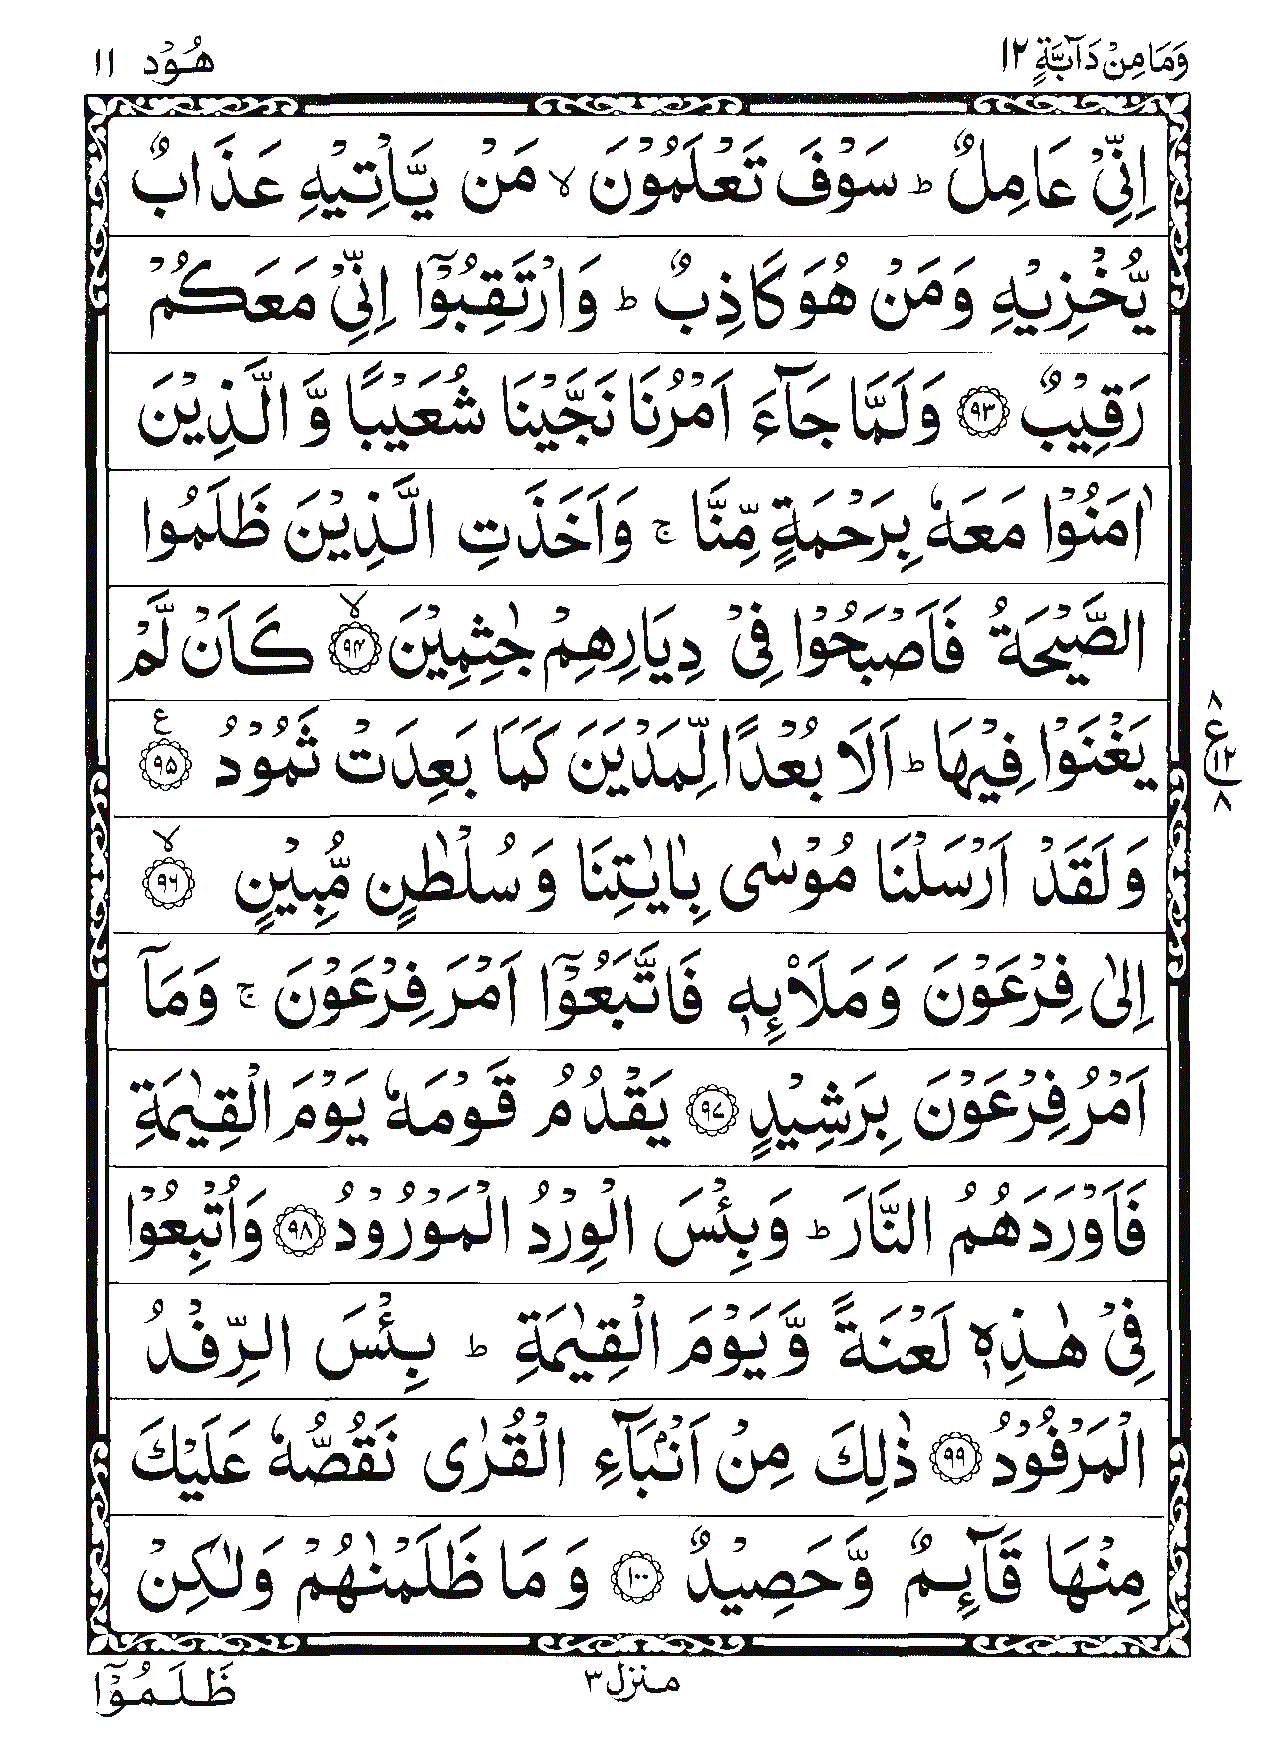 وَمَا مِنْ دَآبَّةٍ ١٢
هُوْد ١١
اِنِّىْ عَامِلٌ ؕ سَوْفَ تَعْلَمُوْنَ ۙ مَنْ يَّاْتِيْهِ عَذَابٌ
يُّخْزِيْهِ وَمَنْ هُوَ كَاذِبٌ ؕ وَارْتَقِبُوْۤا اِنِّىْ مَعَكُمْ
رَقِيْبٌ ﴿۹۳﴾ وَلَمَّا جَآءَ اَمْرُنَا نَجَّيْنَا شُعَيْبًا وَّ الَّذِيْنَ
اٰمَنُوْا مَعَهٗ بِرَحْمَةٍ مِّنَّا ۚ وَاَخَذَتِ الَّذِيْنَ ظَلَمُوا
الصَّيْحَةُ فَاَصْبَحُوْا فِىْ دِيَارِهِمْ جٰثِمِيْنَ ۙ﴿۹۴﴾ كَاَنْ لَّمْ
يَغْنَوْا فِيْهَا ؕ اَلَا بُعْدًا لِّمَدْيَنَ كَمَا بَعِدَتْ ثَمُوْدُ ﴿۹۵﴾ ع
٨ ع ١٢ ٨
وَلَقَدْ اَرْسَلْنَا مُوْسٰى بِاٰيٰتِنَا وَسُلْطٰنٍ مُّبِيْنٍ ۙ﴿۹۶﴾
اِلٰى فِرْعَوْنَ وَمَلَا۟ئِهٖ فَاتَّبَعُوْۤا اَمْرَ فِرْعَوْنَ ۚ وَمَاۤ
اَمْرُ فِرْعَوْنَ بِرَشِيْدٍ ﴿۹۷﴾ يَقْدُمُ قَوْمَهٗ يَوْمَ الْقِيٰمَةِ
فَاَوْرَدَهُمُ النَّارَ ؕ وَبِئْسَ الْوِرْدُ الْمَوْرُوْدُ ﴿۹۸﴾ وَاُتْبِعُوْا
فِىْ هٰذِهٖ لَعْنَةً وَّ يَوْمَ الْقِيٰمَةِ ؕ بِئْسَ الرِّفْدُ
الْمَرْفُوْدُ ﴿۹۹﴾ ذٰلِكَ مِنْ اَنْۢبَآءِ الْقُرٰى نَقُصُّهٗ عَلَيْكَ
مِنْهَا قَآئِمٌ وَّحَصِيْدٌ ﴿۱۰۰﴾ وَ مَا ظَلَمْنٰهُمْ وَلٰكِنْ
منزل ٣
ظَلَمُوْۤا